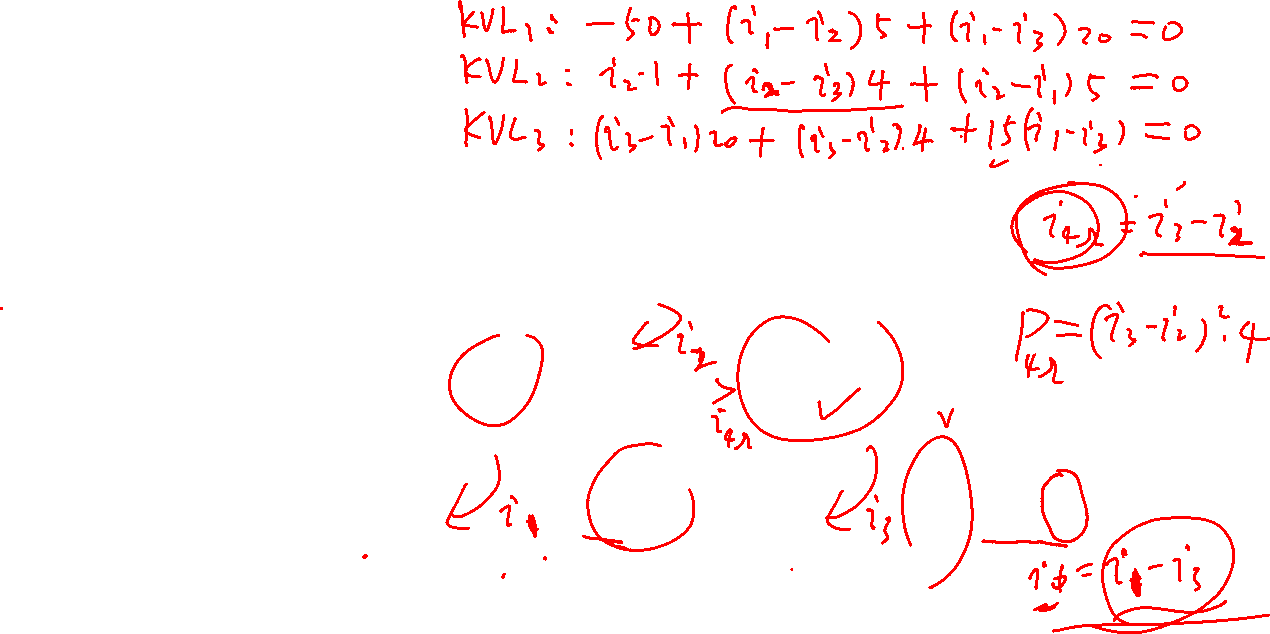 KVL₁: -50 + (i₁ - i₂)5 + (i₁ - i₃)20 = 0
KVL₂: i₂·1 + (i₂ - i₃)4 + (i₂ - i₁)5 = 0
KVL₃: (i₃ - i₁)20 + (i₃ - i₂)·4 + 15(i₁ - i₃) = 0
i₄Ω = i₃ - i₂
P₄Ω = (i₃ - i₂)²·4
i₂
i₄Ω
i₁
i₃
iϕ = i₁ - i₃